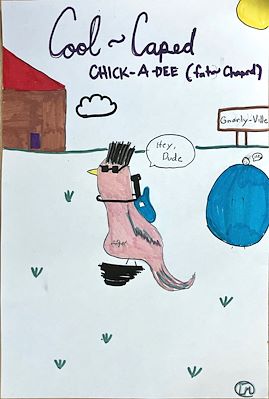 Cool ~ Caped
CHICK-A-DEE
Gnarly-Ville
Hey,
Dude